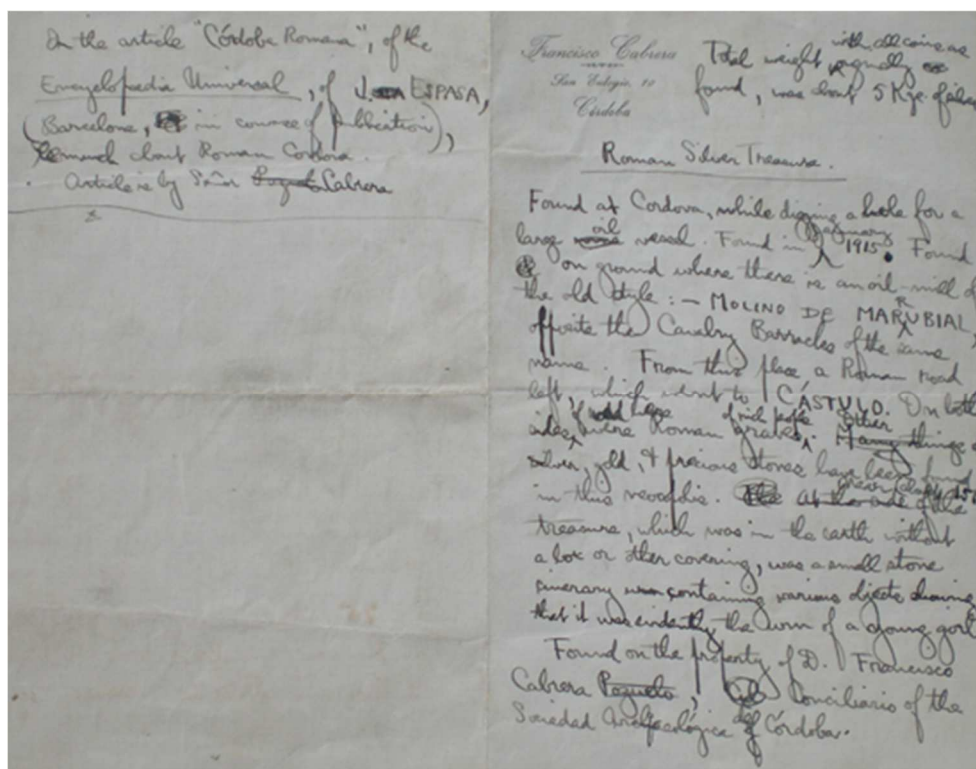 In the article "Córdoba Romana", of the
Encyclopædia Universal, of J. ESPASA,
(Barcelona, in course of publication),
is much about Roman Cordova.
Article is by Señor Cabrera
Francisco Cabrera
San Eulogio,
Córdoba
Total weight with all coins as
originally
found, was about 5 Kgs. of silver
Roman Silver Treasure.
Found at Cordova, while digging a hole for a
large oil vessel. Found in January 1915. Found
on ground where there is an oil-mill of
the old style :- MOLINO DE MARRUBIAL,
opposite the Cavalry Barracks of the same
name. From this place a Roman road
left, which went to CÁSTULO. On both
sides were Roman graves of rich people. Other things of
silver, gold, & precious stones have been found
in this the
treasure, which was in the earth without
a box or other covering, was a small stone
cinerary urn containing various objects showing
that it was evidently the urn of a young girl
Found on the property of D. Francisco
Cabrera Pozuelo, Conciliario of the
Sociedad Arqueológica de Córdoba.